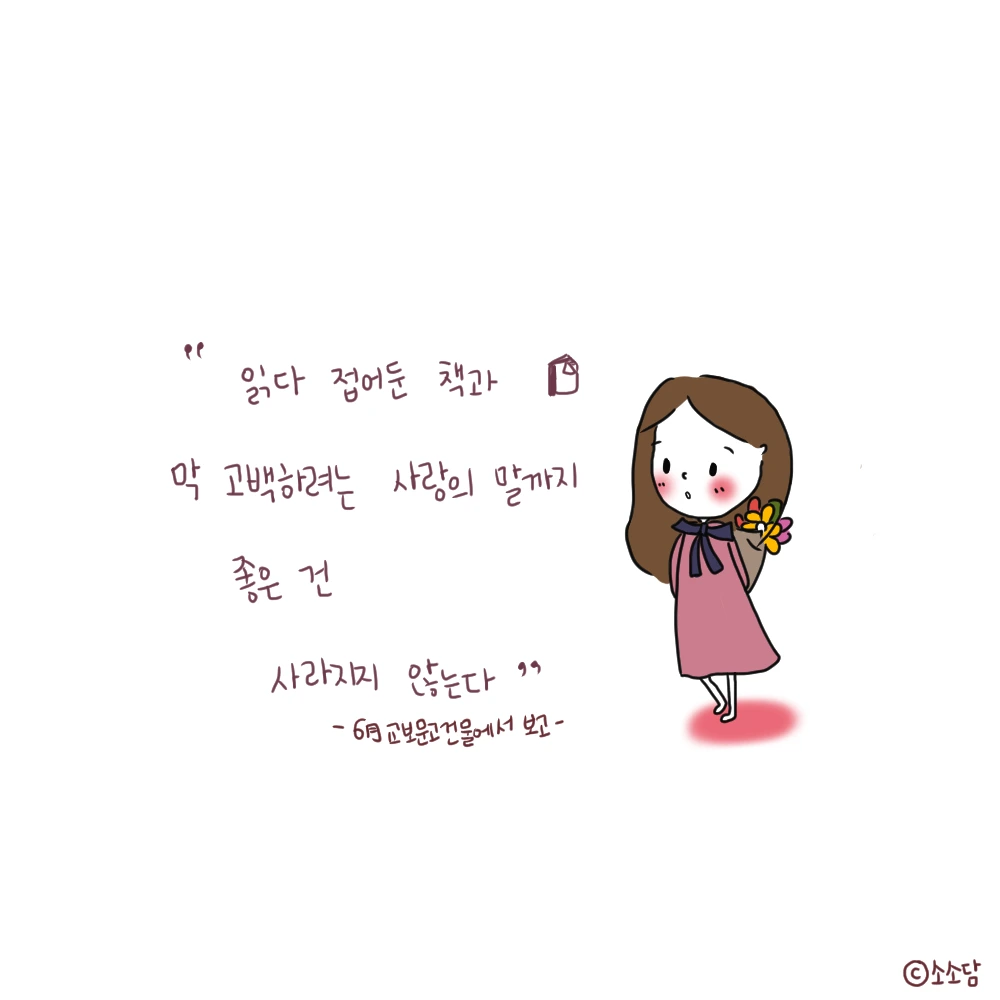 “ 읽다 접어둔 책과
막 고백하려는 사랑의 말까지
좋은 건
사라지지 않는다 ”
- 6月 교보문고건물에서 보고 -
©소소담